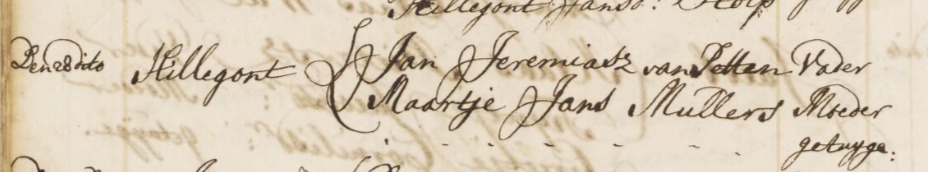 Hillegont Jans:
Den 28 dito Hillegont { Jan Jeremiasz van Petten Vader
Maartje Jans Mullers Moeder
getuyge: